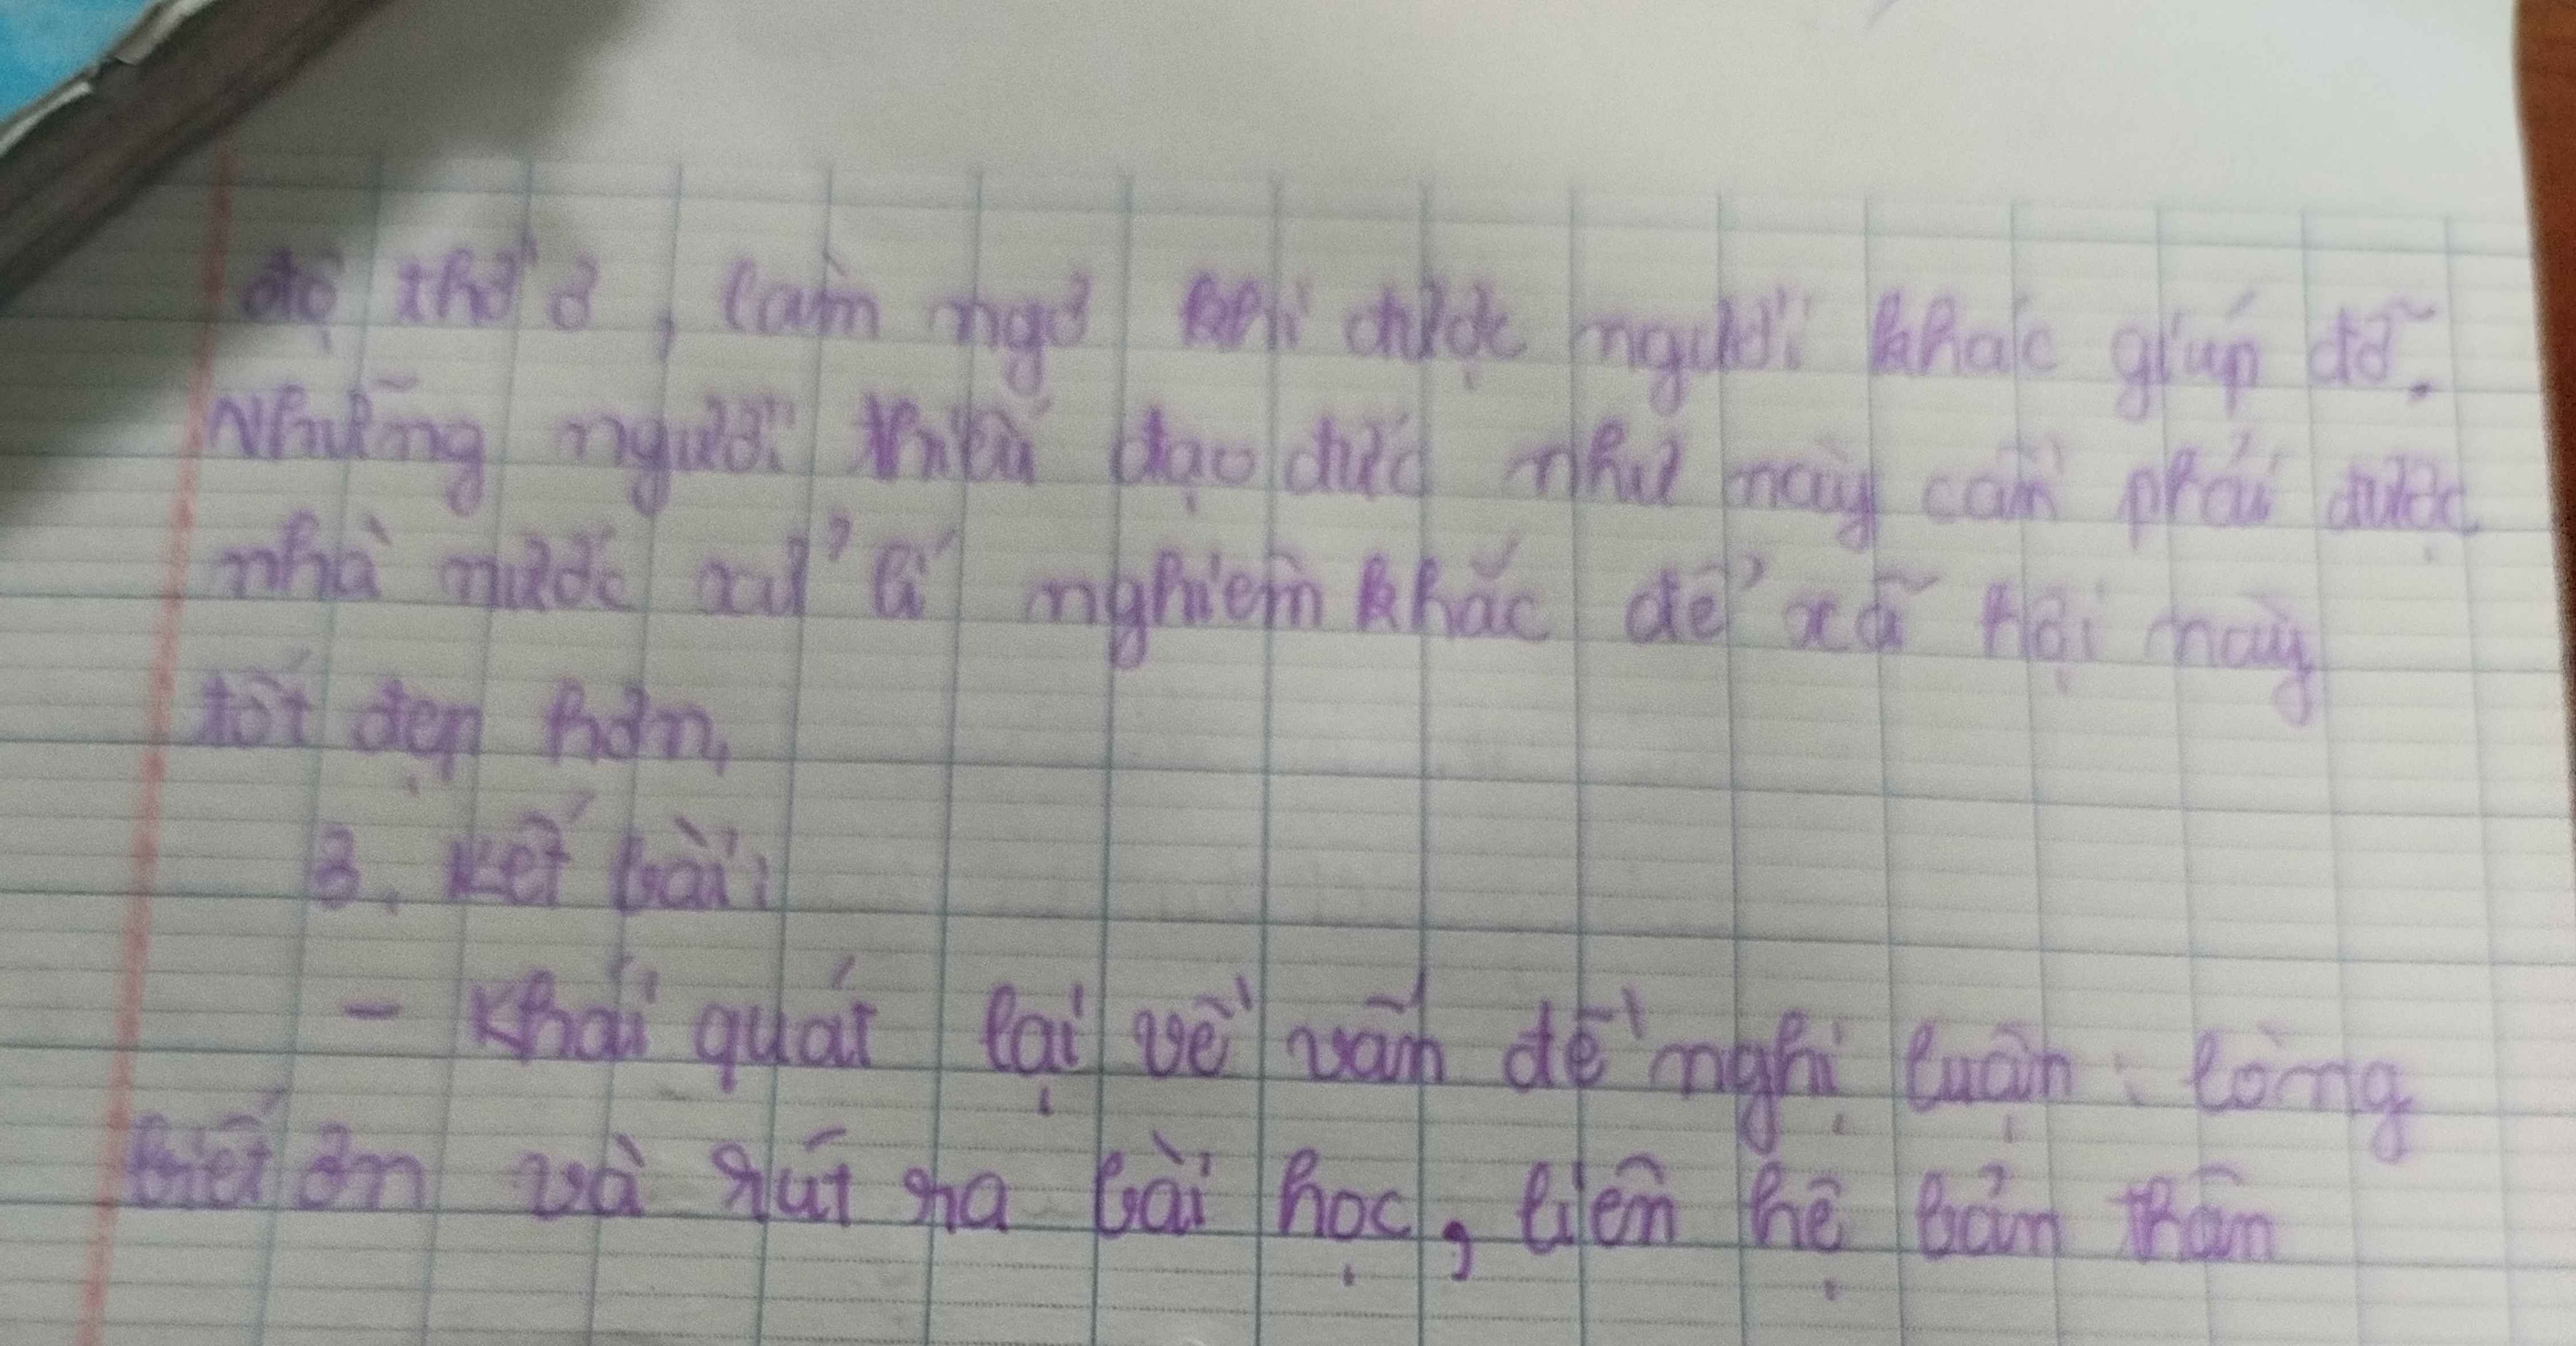 độ thờ ơ, làm ngơ khi được người khác giúp đỡ.
Những người thiếu đạo đức như này cần phải được
nhà nước xử lí nghiêm khắc để xã hội này
tốt đẹp hơn,
3. Kết bài:
- Khái quát lại về vấn đề nghị luận: lòng
biết ơn và rút ra bài học, liên hệ bản thân